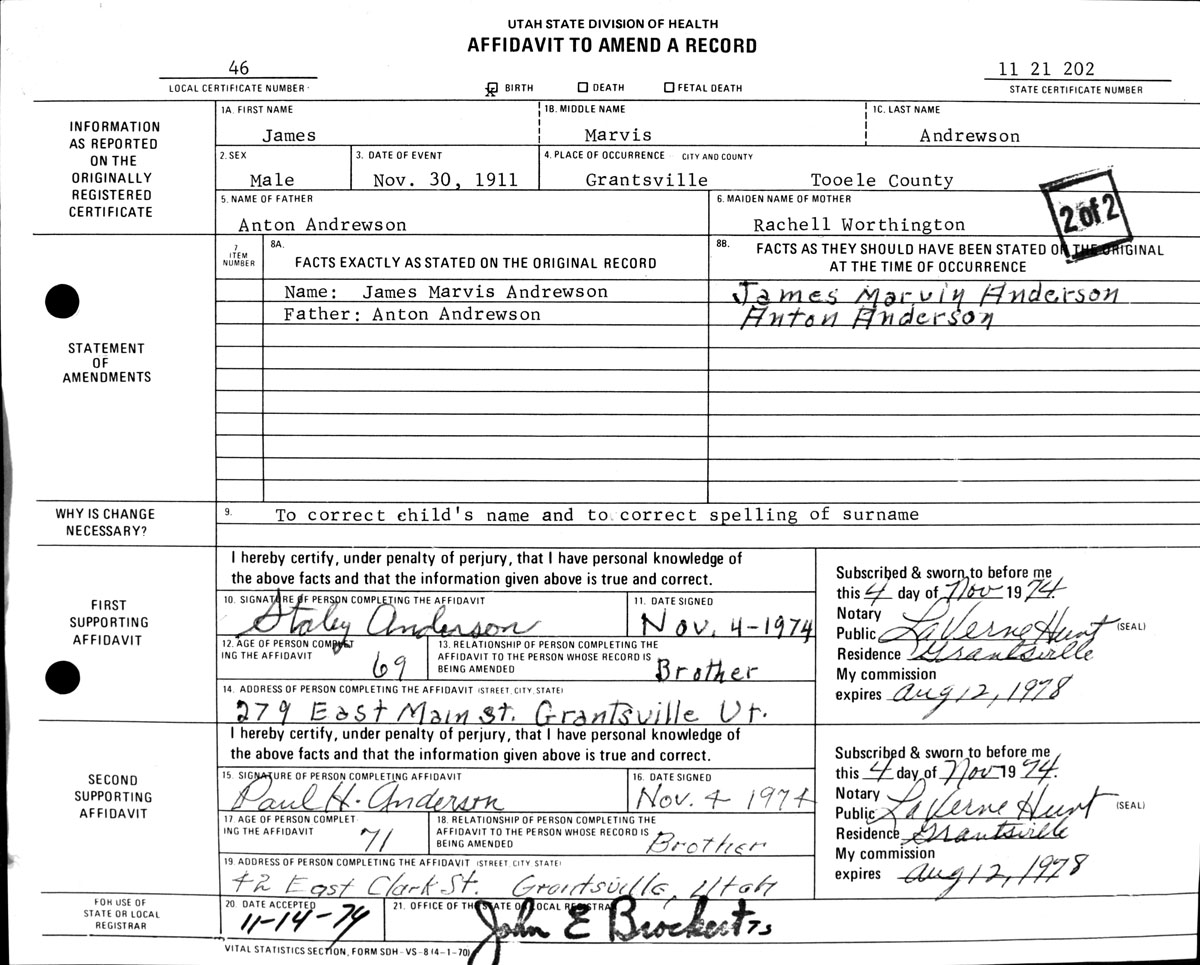 UTAH STATE DIVISION OF HEALTH
AFFIDAVIT TO AMEND A RECORD
46
11 21 202
LOCAL CERTIFICATE NUMBER
X BIRTH DEATH FETAL DEATH
STATE CERTIFICATE NUMBER
INFORMATION
AS REPORTED
ON THE
ORIGINALLY
REGISTERED
CERTIFICATE
1A. FIRST NAME 1B. MIDDLE NAME 1C. LAST NAME
James Marvis Andrewson
2. SEX 3. DATE OF EVENT 4. PLACE OF OCCURRENCE CITY AND COUNTY
Male Nov. 30, 1911 Grantsville Tooele County
5. NAME OF FATHER 6. MAIDEN NAME OF MOTHER
Anton Andrewson Rachell Worthington
2 of 2
STATEMENT
OF
AMENDMENTS
7
ITEM
NUMBER
8A.
FACTS EXACTLY AS STATED ON THE ORIGINAL RECORD
8B.
FACTS AS THEY SHOULD HAVE BEEN STATED ON THE ORIGINAL
AT THE TIME OF OCCURRENCE
Name: James Marvis Andrewson James Marvin Anderson
Father: Anton Andrewson Anton Anderson
WHY IS CHANGE
NECESSARY?
9. To correct child's name and to correct spelling of surname
FIRST
SUPPORTING
AFFIDAVIT
I hereby certify, under penalty of perjury, that I have personal knowledge of
the above facts and that the information given above is true and correct.
10. SIGNATURE OF PERSON COMPLETING THE AFFIDAVIT 11. DATE SIGNED
Staley Anderson Nov. 4-1974
12. AGE OF PERSON COMPLET
ING THE AFFIDAVIT 69
13. RELATIONSHIP OF PERSON COMPLETING THE
AFFIDAVIT TO THE PERSON WHOSE RECORD IS
BEING AMENDED Brother
14. ADDRESS OF PERSON COMPLETING THE AFFIDAVIT (STREET, CITY, STATE)
279 East Main St. Grantsville Ut.
Subscribed & sworn to before me
this 4 day of Nov 1974
Notary
Public LaVerne Hunt (SEAL)
Residence Grantsville
My commission
expires Aug 12, 1978
SECOND
SUPPORTING
AFFIDAVIT
I hereby certify, under penalty of perjury, that I have personal knowledge of
the above facts and that the information given above is true and correct.
15. SIGNATURE OF PERSON COMPLETING AFFIDAVIT 16. DATE SIGNED
Paul H. Anderson Nov. 4 1974
17. AGE OF PERSON COMPLET
ING THE AFFIDAVIT 71
18. RELATIONSHIP OF PERSON COMPLETING THE
AFFIDAVIT TO THE PERSON WHOSE RECORD IS
BEING AMENDED Brother
19. ADDRESS OF PERSON COMPLETING THE AFFIDAVIT (STREET, CITY, STATE)
42 East Clark St. Grantsville, Utah
Subscribed & sworn to before me
this 4 day of Nov 1974.
Notary
Public LaVerne Hunt (SEAL)
Residence Grantsville
My commission
expires Aug 12, 1978
FOR USE OF
STATE OR LOCAL
REGISTRAR
20. DATE ACCEPTED 21. OFFICE OF THE STATE OR LOCAL REGISTRAR
11-14-74 John E Brockert
VITAL STATISTICS SECTION, FORM SDH-VS-8 (4-1-70)